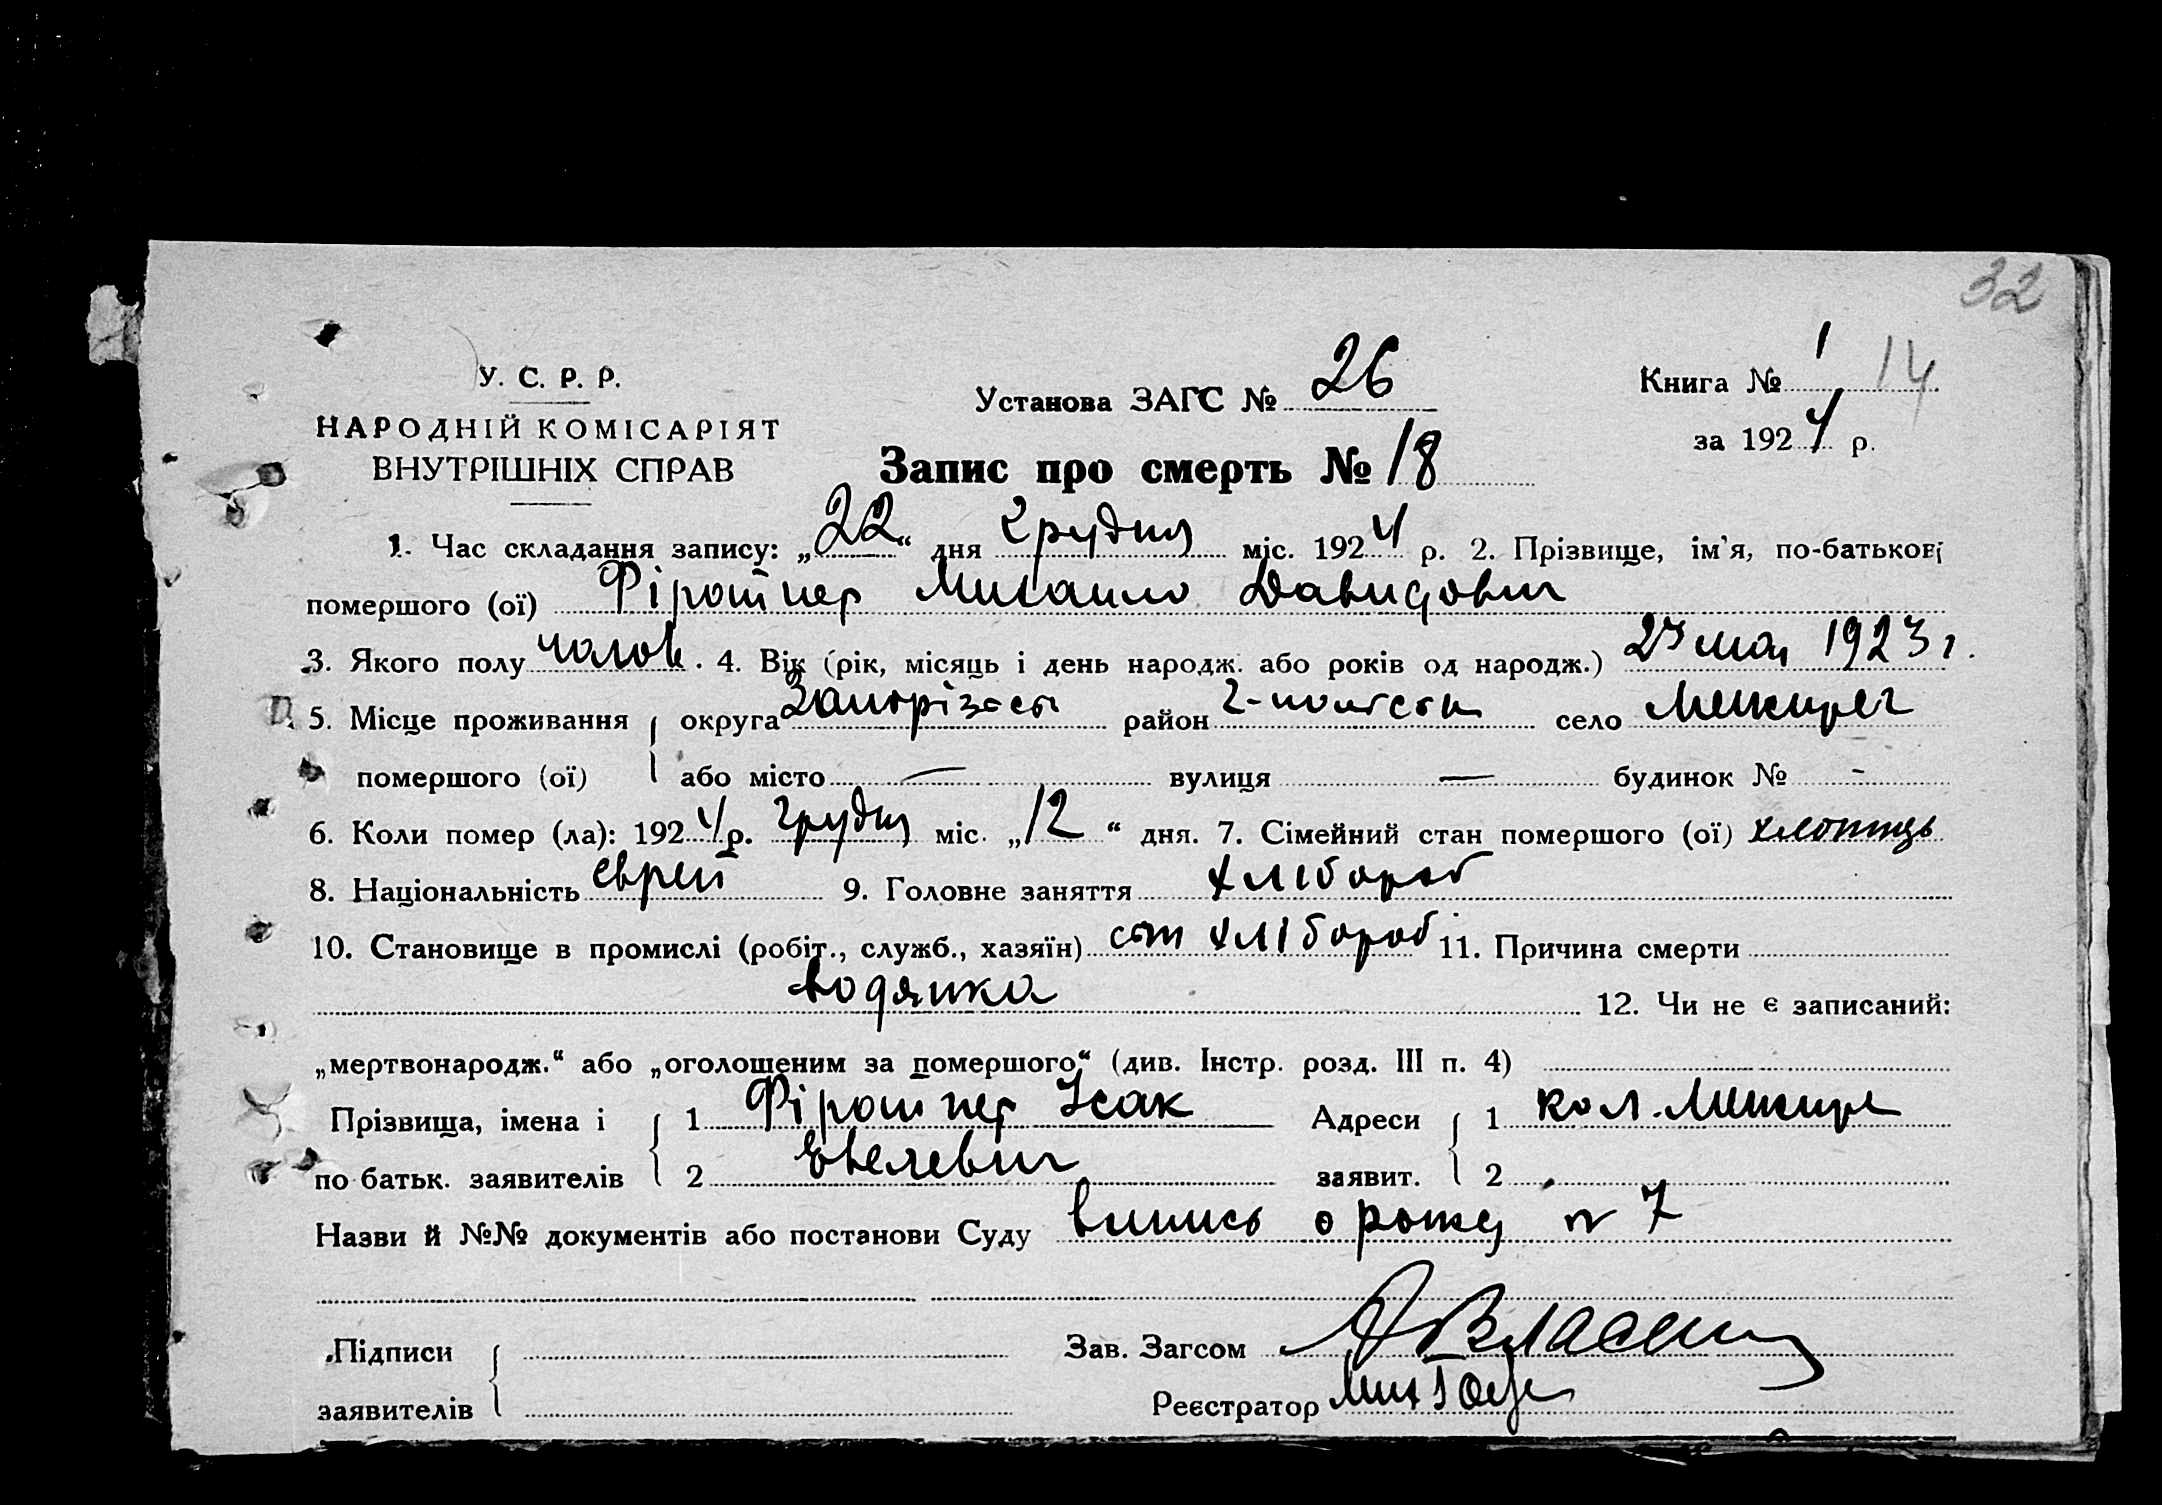 32
У. С. Р. Р.
НАРОДНІЙ КОМІСАРІЯТ
ВНУТРІШНІХ СПРАВ
Установа ЗАГС № 26
Книга № 1 14
за 1924 р.
Запис про смерть № 18
1. Час складання запису: „22“ дня грудня міс. 1924 р. 2. Прізвище, ім'я, по-батькові
помершого (ої) Михаило Давидович
3. Якого полу чолов. 4. Вік (рік, місяць і день народж. або років од народж.) мая 1923 г.
5. Місце проживання округа район село
помершого (ої) або місто — вулиця — будинок № -
6. Коли помер (ла): 1924 р. грудня міс. „12“ дня. 7. Сімейний стан помершого (ої) хлопець
8. Національність еврей 9. Головне заняття хлібороб
10. Становище в промислі (робіт., служб., хазяїн) хлібороб 11. Причина смерти
водянка 12. Чи не є записаний:
„мертвонародж.“ або „оголошеним за помершого“ (див. Інстр. розд. III п. 4)
Прізвища, імена і 1 Ісак Адреси 1 кол.
по батьк. заявителів 2 Евелевич заявит. 2
Назви й №№ документів або постанови Суду выпись о рожд № 7
Підписи Зав. Загсом
заявителів Реєстратор